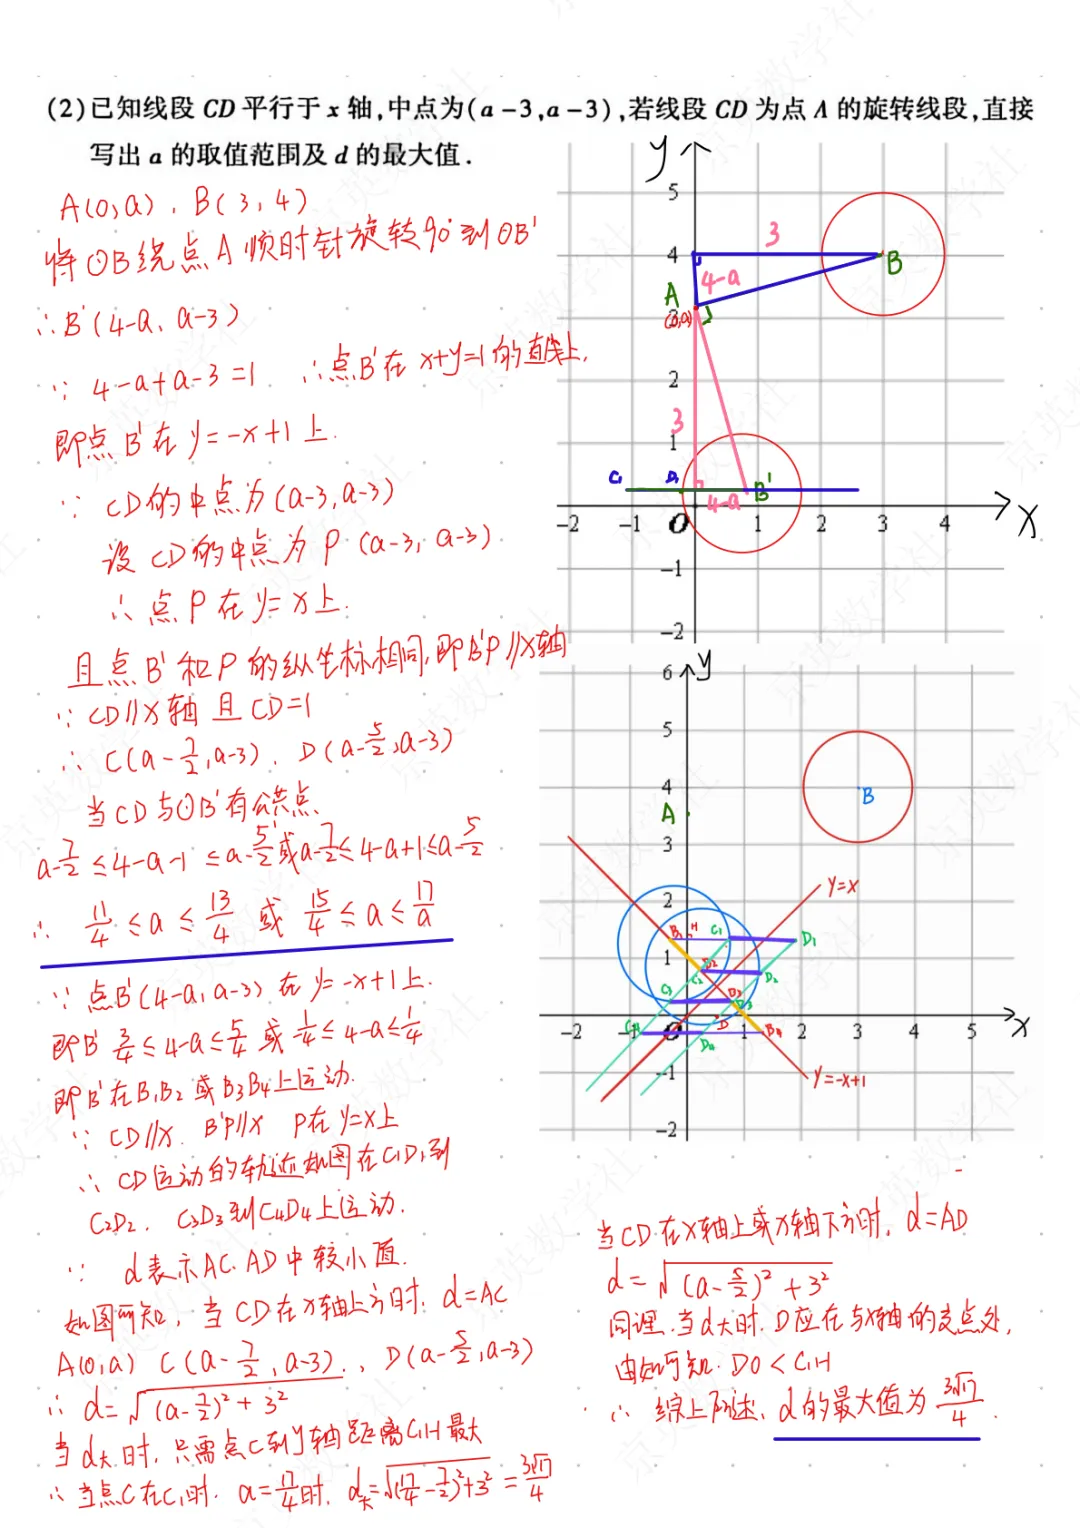 (2)已知线段 CD 平行于 x 轴,中点为(a-3,a-3),若线段 CD 为点 A 的旋转线段,直接
写出 a 的取值范围及 d 的最大值.
A(0,a), B(3,4)
将⊙B绕点A顺时针旋转90°到⊙B'
∴B'(4-a, a-3)
∵ 4-a+a-3=1 ∴点B'在x+y=1的直线上.
即点B'在y=-x+1上.
∵ CD的中点为(a-3,a-3)
设CD的中点为P(a-3, a-3)
∴点P在y=x上.
且点B'和P的纵坐标相同,即B'P//x轴
∵ CD//x轴 且CD=1
∴ C(a-7/2,a-3), D(a-5/2,a-3)
当CD与⊙B'有公共点
a-7/2≤4-a-1≤a-5/2或a-7/2≤4-a+1≤a-5/2
∴ 11/4≤a≤13/4 或 15/4≤a≤17/a
∵点B'(4-a,a-3)在y=-x+1上.
即B' 3/4≤4-a≤5/4 或 -1/4≤4-a≤1/4
即B'在B1B2或B3B4上运动.
∵ CD//x. B'P//x P在y=x上
∴ CD运动的轨迹如图在C1D1到
C2D2, C3D3到C4D4上运动.
∵ d表示AC.AD中较小值.
如图可知, 当CD在x轴上方时, d=AC
A(0,a) C(a-7/2,a-3), D(a-5/2,a-3)
∴ d=√((a-7/2)²+3²)
当d大时,只需点C到y轴距离C1H最大
∴当点C在C1时. a=17/4时, d大=√((17/4-7/2)²+3²)=3√17/4
当CD在x轴上或x轴下方时, d=AD
d=√((a-5/2)²+3²)
同理,当d大时,D应在与x轴的交点处,
由如可知. DO<C1H
∴ 综上所述, d的最大值为3√17/4.
y
5
4
3
B
4-a
A
(0,a)
2
3
1
C1
D1
4-a
B'
-2
-1
O
1
2
3
4
x
-1
-2
6
y
5
4
B
A
3
2
y=x
B1
H
C1
D1
1
B2
C2
D2
C3
D3
B3
C4
-2
-1
O
D
1
2
3
4
5
x
D4
B4
-1
y=-x+1
-2